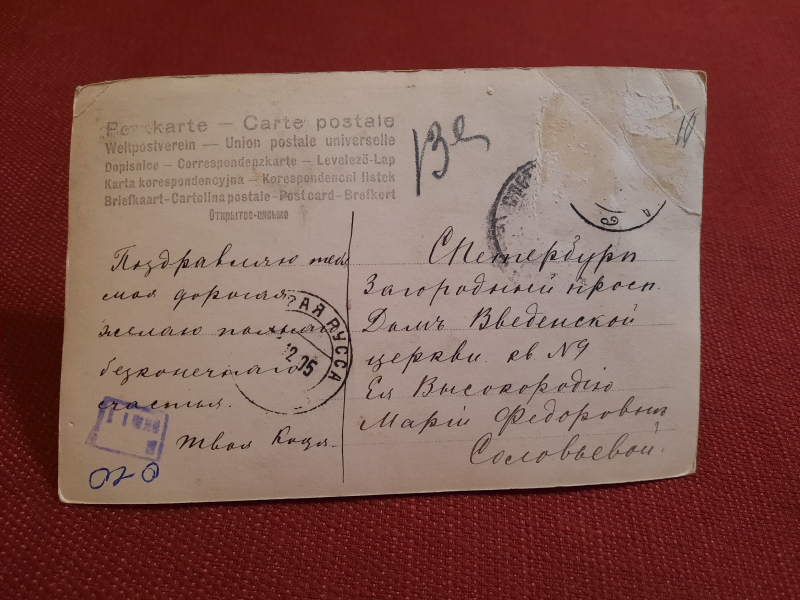 Postkarte — Carte postale
Weltpostverein — Union postale universelle
Dopisnice — Correspondenzkarte — Levelező-Lap
Karta korespondencyjna — Korespondencni listek
Briefkaart — Cartolina postale — Post card — Brefkort
Открытое-письмо
Поздравляю тебя
моя дорогая
желаю полнаго
безконечнаго
счастья.
Твоя
СПетербургъ
Загородный просп.
Домъ Введенской
церкви кв. N9
Ея Высокородію
Маріи Федоровнѣ
Соловьевой.
РАЯ РУССА
12.05
10